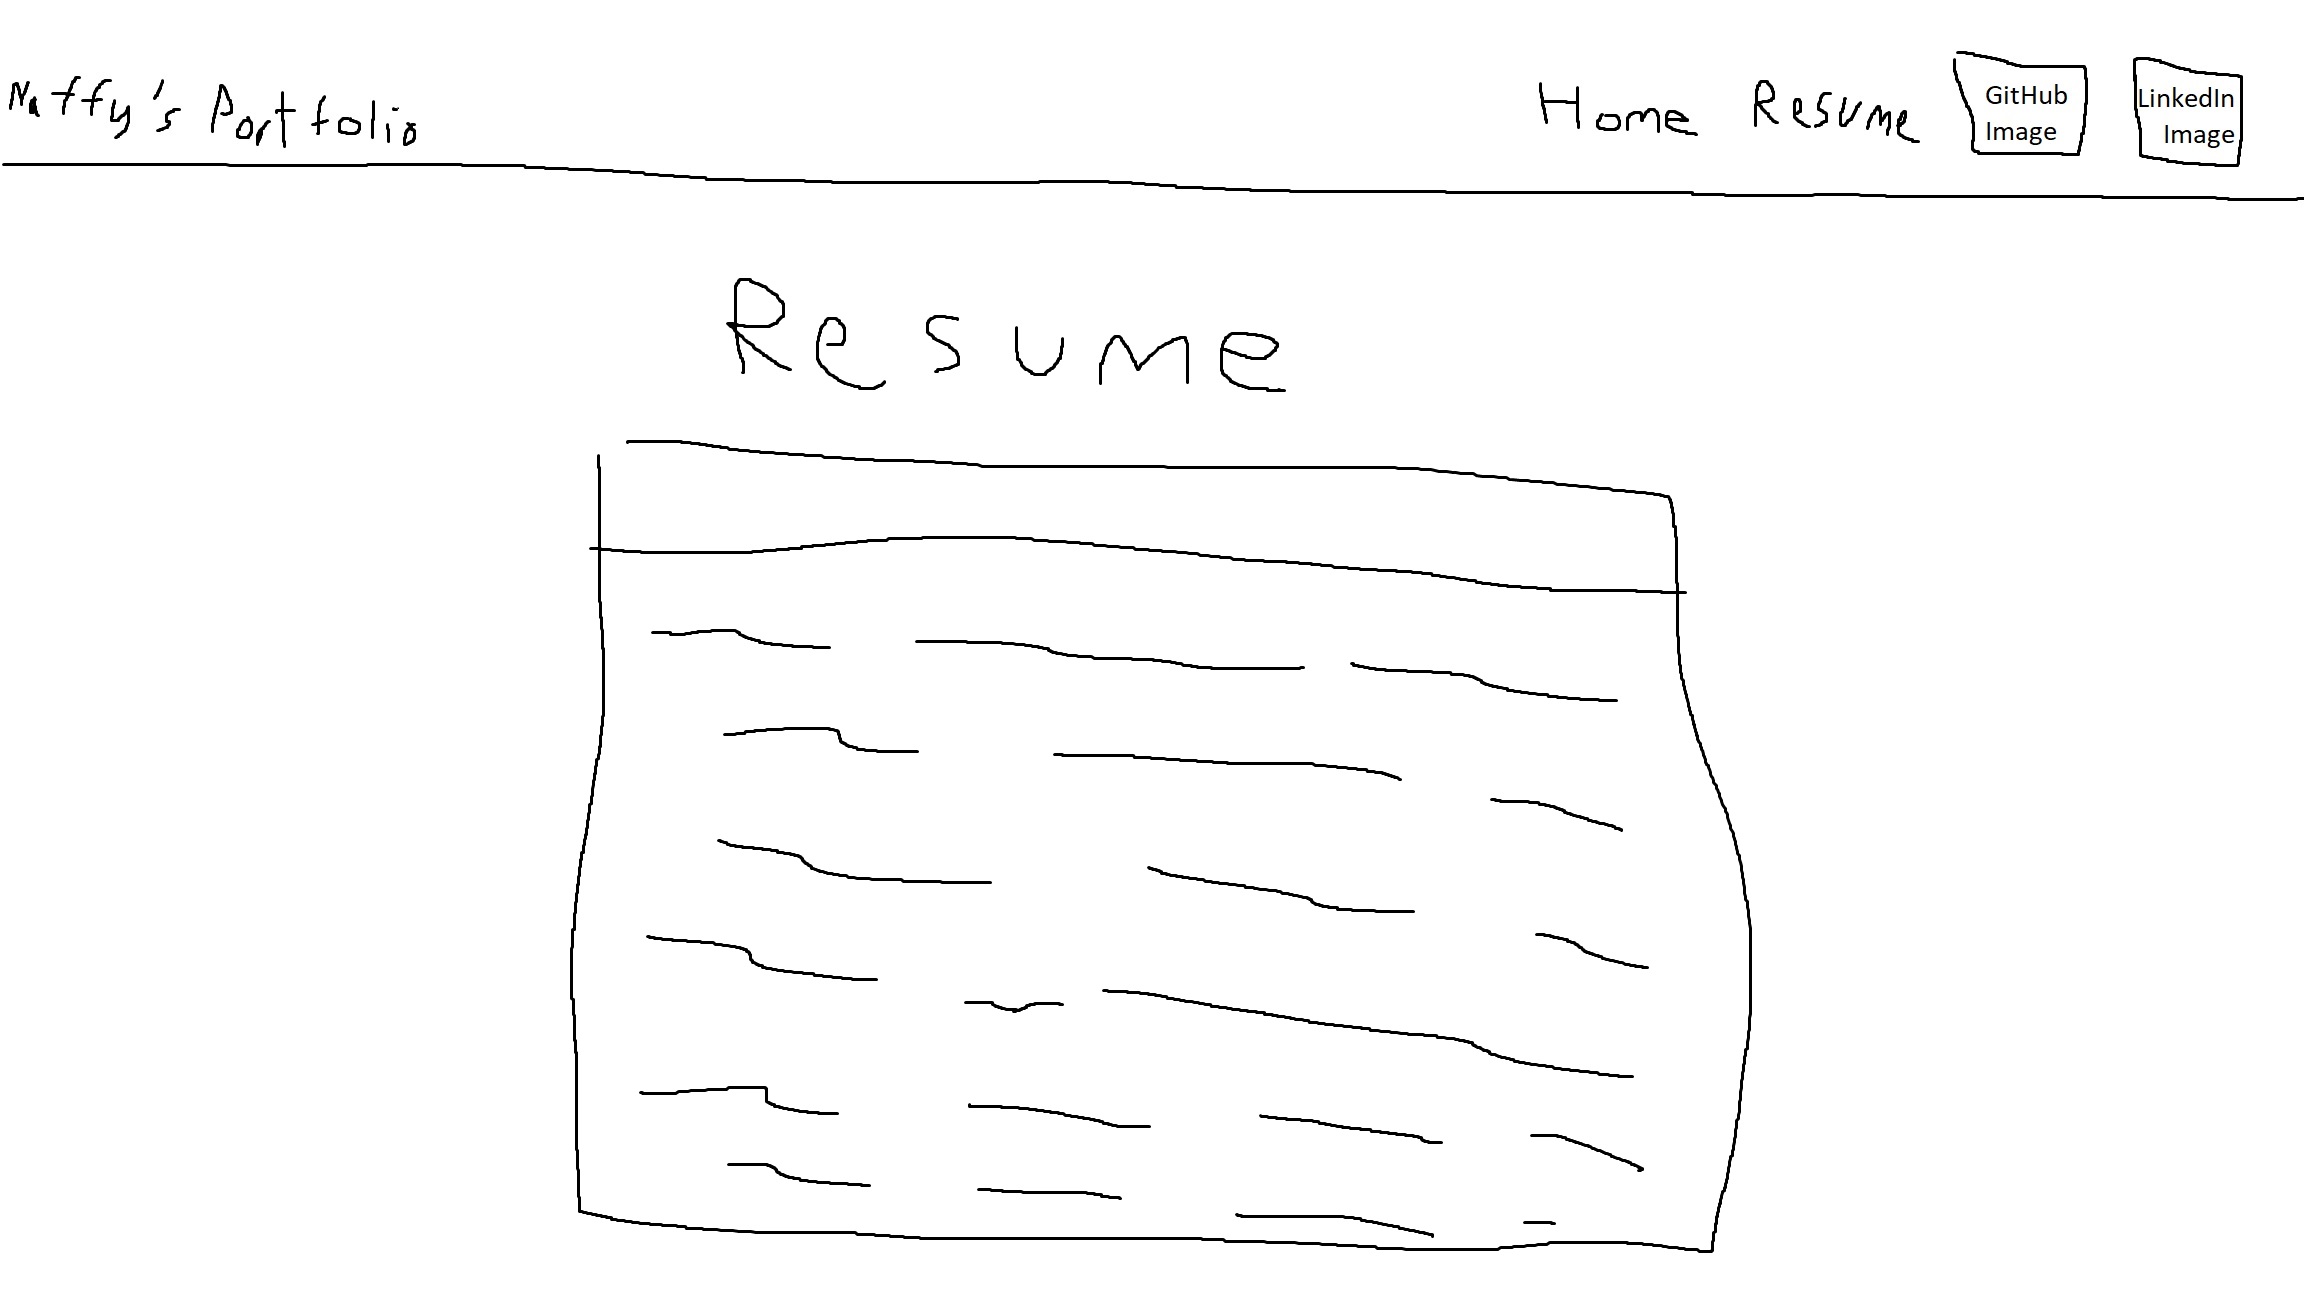 Naffy's Portfolio
Home Resume
GitHub
Image
LinkedIn
Image
Resume